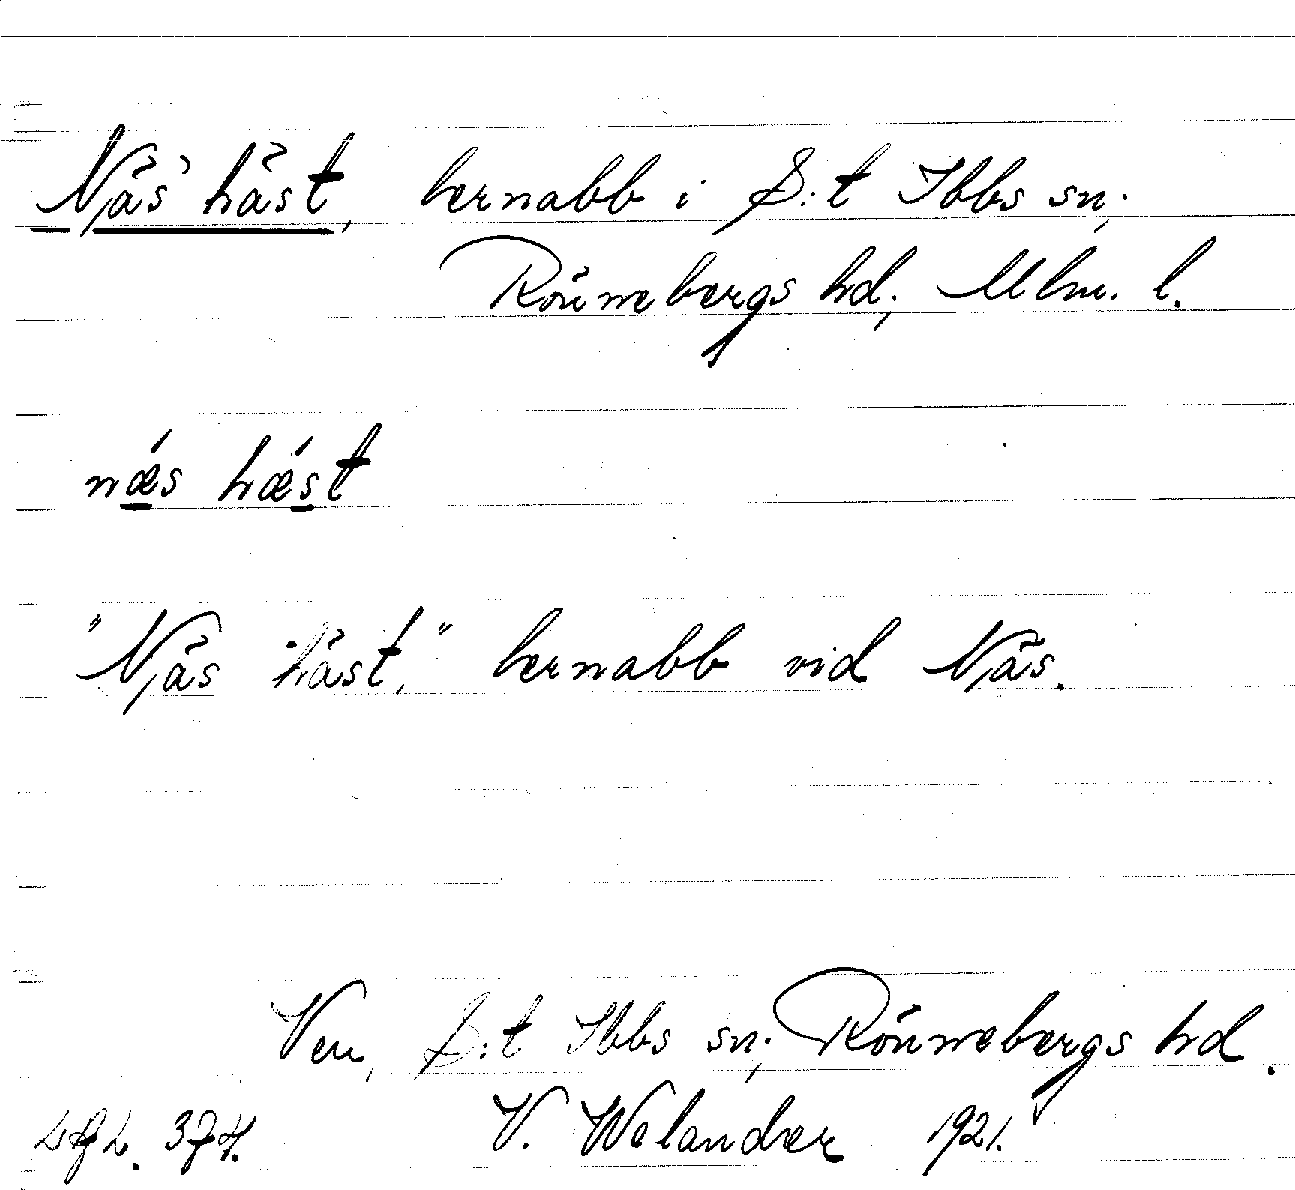 Näs häst, bernabb i S:t Ibbs sn;
Rönnebergs hd; Mlm. l.
nǽs hǽst
"Näs häst," bernabb vid Näs.
Ven, S:t Ibbs sn; Rönnebergs hd.
374. V. Welander 1921.